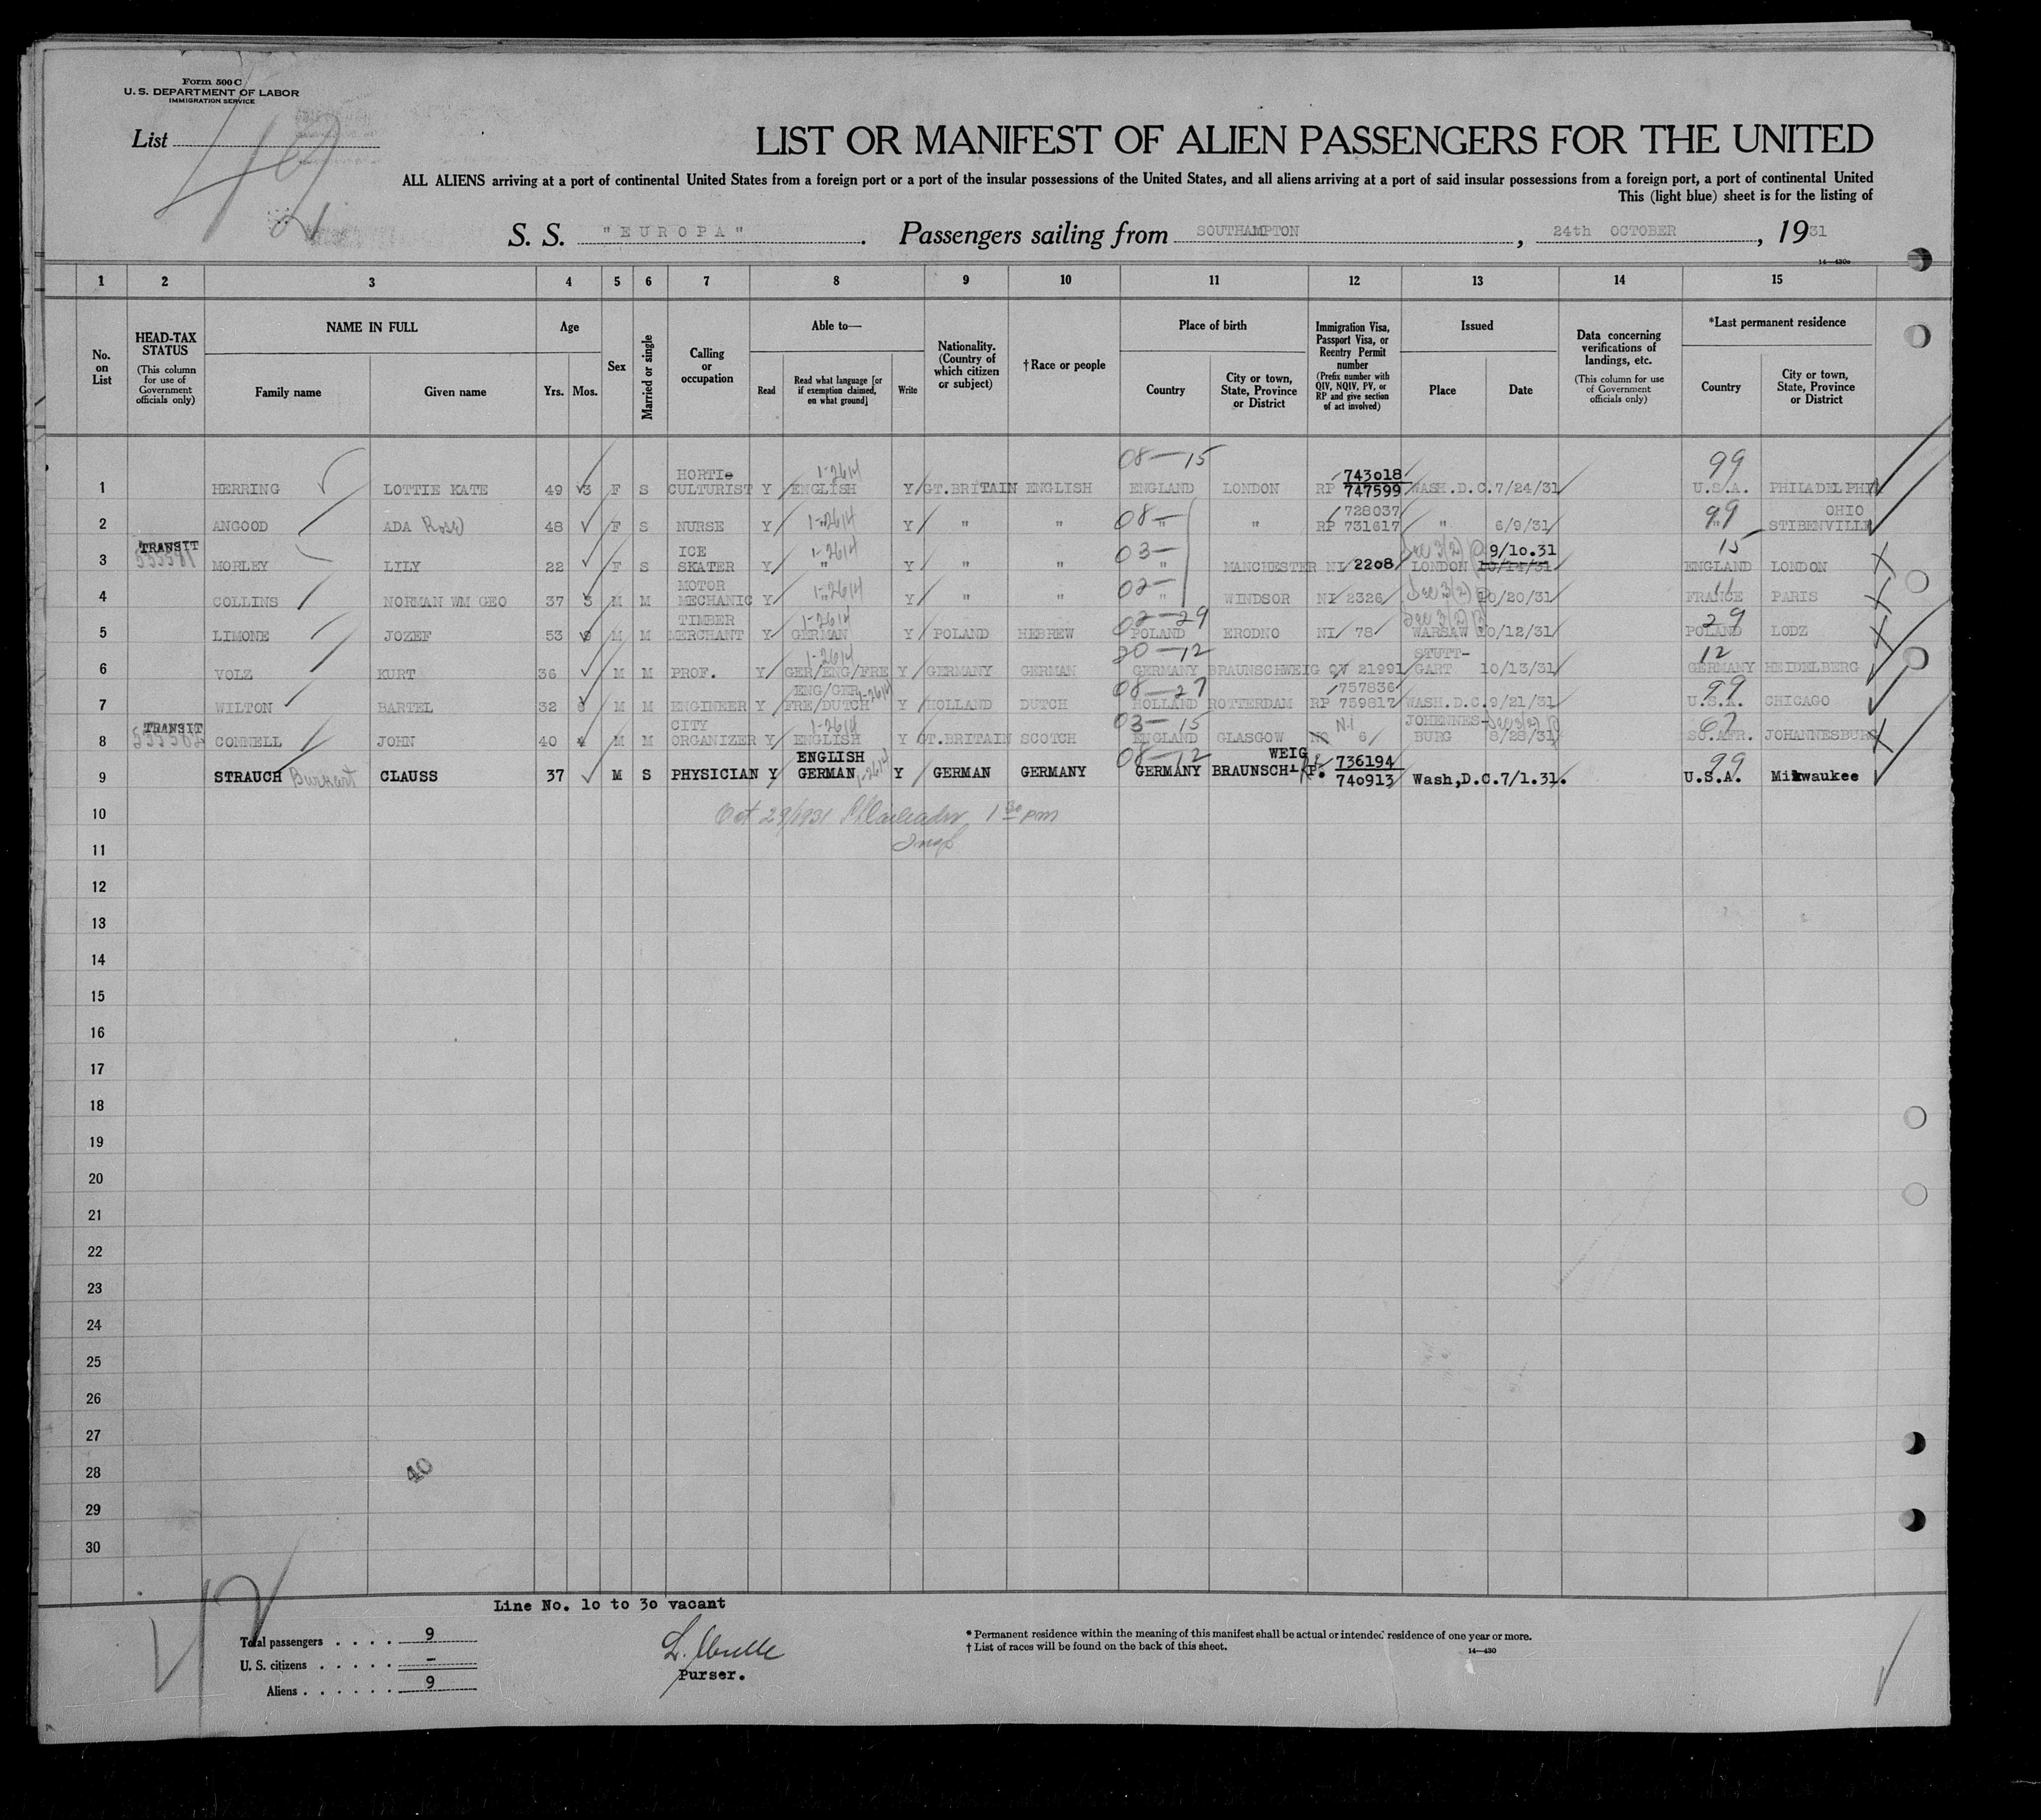 Form 500 C
U. S. DEPARTMENT OF LABOR
IMMIGRATION SERVICE
List
LIST OR MANIFEST OF ALIEN PASSENGERS FOR THE UNITED
ALL ALIENS arriving at a port of continental United States from a foreign port or a port of the insular possessions of the United States, and all aliens arriving at a port of said insular possessions from a foreign port, a port of continental United
This (light blue) sheet is for the listing of
S. S. "EUROPA". Passengers sailing from SOUTHAMPTON, 24th OCTOBER, 1931
14—430a
1 2 3 4 5 6 7 8 9 10 11 12 13 14 15
No. on List
HEAD-TAX STATUS (This column for use of Government officials only)
NAME IN FULL
Family name Given name
Age
Yrs. Mos.
Sex
Married or single
Calling or occupation
Able to—
Read Read what language [or if exemption claimed, on what ground] Write
Nationality. (Country of which citizen or subject)
† Race or people
Place of birth
Country City or town, State, Province or District
Immigration Visa, Passport Visa, or Reentry Permit number (Prefix number with QIV, NQIV, PV, or RP and give section of act involved)
Issued
Place Date
Data concerning verifications of landings, etc. (This column for use of Government officials only)
*Last permanent residence
Country City or town, State, Province or District
08—15 99
HORTI- 1-2614 743018
1 HERRING LOTTIE KATE 49 3 F S CULTURIST Y ENGLISH Y GT.BRITAIN ENGLISH ENGLAND LONDON RP 747599 WASH.D.C. 7/24/31 U.S.A. PHILADELPHI
1-2614 08— 728037 99 OHIO
2 ANGOOD ADA Rose 48 F S NURSE Y " Y " " " " RP 731617 " 6/9/31 " STIBENVILLE
TRANSIT ICE 1-2614 03— Sec 3(2) 9/10.31 15
3 MORLEY LILY 22 F S SKATER Y " Y " " " MANCHESTER NI 2208 LONDON 10/14/31 ENGLAND LONDON
MOTOR 1-2614 02— Sec 3(2) 11
4 COLLINS NORMAN WM GEO 37 3 M M MECHANIC Y " Y " " " WINDSOR NI 2326 " 10/20/31 FRANCE PARIS
TIMBER 1-2614 02—29 Sec 3(2) 29
5 LIMONE JOZEF 53 M M MERCHANT Y GERMAN Y POLAND HEBREW POLAND ERODNO NI 78 WARSAW 10/12/31 POLAND LODZ
1-2614 20—12 STUTT- 12
6 VOLZ KURT 36 M M PROF. Y GER/ENG/FRE Y GERMANY GERMAN GERMANY BRAUNSCHWEIG QV 21991 GART 10/13/31 GERMANY HEIDELBERG
ENG/GER 1-2614 08—27 757836 99
7 WILTON BARTEL 32 M M ENGINEER Y FRE/DUTCH Y HOLLAND DUTCH HOLLAND ROTTERDAM RP 759817 WASH.D.C. 9/21/31 U.S.A. CHICAGO
TRANSIT CITY 1-2614 03—15 NI JOHENNES- Sec 3(2) 67
8 CONNELL JOHN 40 4 M M ORGANIZER Y ENGLISH Y GT.BRITAIN SCOTCH ENGLAND GLASGOW 6 BURG 8/28/31 SO.AFR. JOHANNESBURG
ENGLISH 08—12 WEIG 736194 99
9 STRAUCH Burkart CLAUSS 37 M S PHYSICIAN Y GERMAN 1-2614 Y GERMAN GERMANY GERMANY BRAUNSCH RP. 740913 Wash,D.C. 7/1.31. U.S.A. Milwaukee
10 Oct 29/1931 1 30 pm
11 Insp
12
13
14
15
16
17
18
19
20
21
22
23
24
25
26
27
28 40
29
30
Line No. 10 to 30 vacant
Total passengers . . . . 9
U. S. citizens . . . . . –
Aliens . . . . . . 9
Purser.
* Permanent residence within the meaning of this manifest shall be actual or intended residence of one year or more.
† List of races will be found on the back of this sheet.
14—430